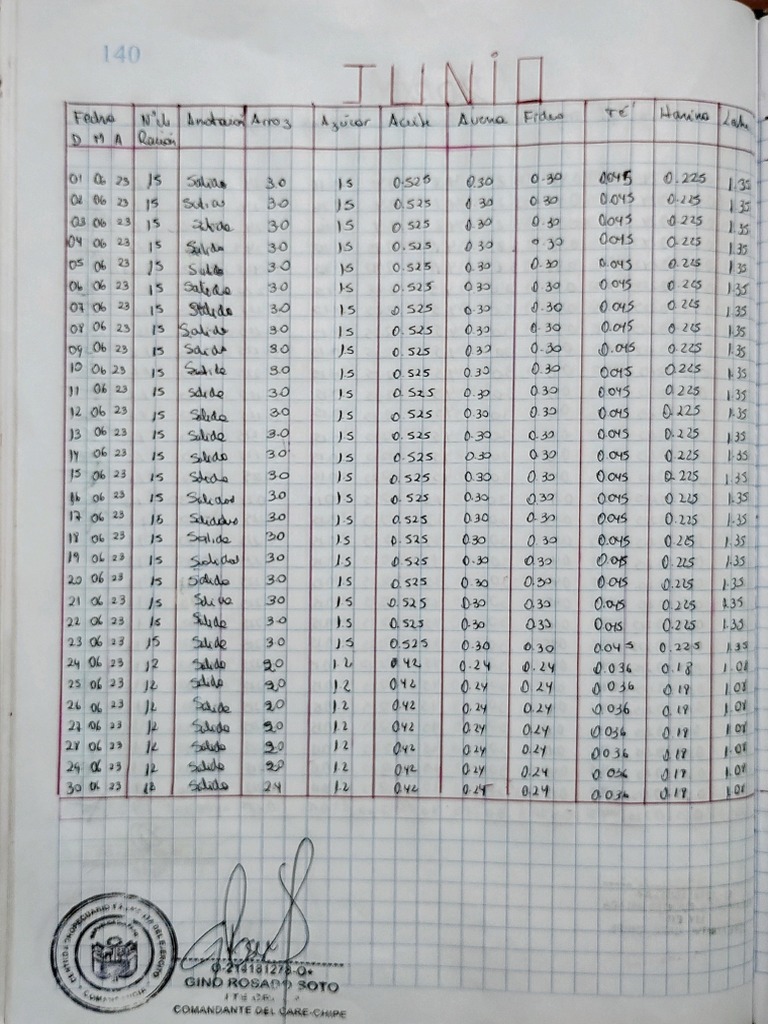 140
JUNIO
Fecha N° de Anotacion Arroz Azúcar Aceite Avena Fideo TÉ Harina Leche
D M A Racion
01 06 23 15 Salida 3.0 1.5 0.525 0.30 0.30 0.045 0.225 1.35
02 06 23 15 Salida 3.0 1.5 0.525 0.30 0.30 0.045 0.225 1.35
03 06 23 15 Salida 3.0 1.5 0.525 0.30 0.30 0.045 0.225 1.35
04 06 23 15 Salida 3.0 1.5 0.525 0.30 0.30 0.045 0.225 1.35
05 06 23 15 Salida 3.0 1.5 0.525 0.30 0.30 0.045 0.225 1.35
06 06 23 15 Salida 3.0 1.5 0.525 0.30 0.30 0.045 0.225 1.35
07 06 23 15 Salida 3.0 1.5 0.525 0.30 0.30 0.045 0.225 1.35
08 06 23 15 Salida 3.0 1.5 0.525 0.30 0.30 0.045 0.225 1.35
09 06 23 15 Salida 3.0 1.5 0.525 0.30 0.30 0.045 0.225 1.35
10 06 23 15 Salida 3.0 1.5 0.525 0.30 0.30 0.045 0.225 1.35
11 06 23 15 Salida 3.0 1.5 0.525 0.30 0.30 0.045 0.225 1.35
12 06 23 15 Salida 3.0 1.5 0.525 0.30 0.30 0.045 0.225 1.35
13 06 23 15 Salida 3.0 1.5 0.525 0.30 0.30 0.045 0.225 1.35
14 06 23 15 Salida 3.0 1.5 0.525 0.30 0.30 0.045 0.225 1.35
15 06 23 15 Salida 3.0 1.5 0.525 0.30 0.30 0.045 0.225 1.35
16 06 23 15 Salidas 3.0 1.5 0.525 0.30 0.30 0.045 0.225 1.35
17 06 23 15 Salidas 3.0 1.5 0.525 0.30 0.30 0.045 0.225 1.35
18 06 23 15 Salida 3.0 1.5 0.525 0.30 0.30 0.045 0.225 1.35
19 06 23 15 Salidas 3.0 1.5 0.525 0.30 0.30 0.045 0.225 1.35
20 06 23 15 Salida 3.0 1.5 0.525 0.30 0.30 0.045 0.225 1.35
21 06 23 15 Salida 3.0 1.5 0.525 0.30 0.30 0.045 0.225 1.35
22 06 23 15 Salida 3.0 1.5 0.525 0.30 0.30 0.045 0.225 1.35
23 06 23 15 Salida 3.0 1.5 0.525 0.30 0.30 0.045 0.225 1.35
24 06 23 12 Salida 1.2 0.42 0.24 0.24 0.036 0.18 1.08
25 06 23 12 Salida 1.2 0.42 0.24 0.24 0.036 0.18 1.08
26 06 23 12 Salida 1.2 0.42 0.24 0.24 0.036 0.18 1.08
27 06 23 12 Salida 1.2 0.42 0.24 0.24 0.036 0.18 1.08
28 06 23 12 Salida 1.2 0.42 0.24 0.24 0.036 0.18 1.08
29 06 23 12 Salida 1.2 0.42 0.24 0.24 0.036 0.18 1.08
30 06 23 12 Salida 2.4 1.2 0.42 0.24 0.24 0.036 0.18 1.08
O-214181278-O+
GINO ROSADO SOTO
COMANDANTE DEL CARE-CHIPE